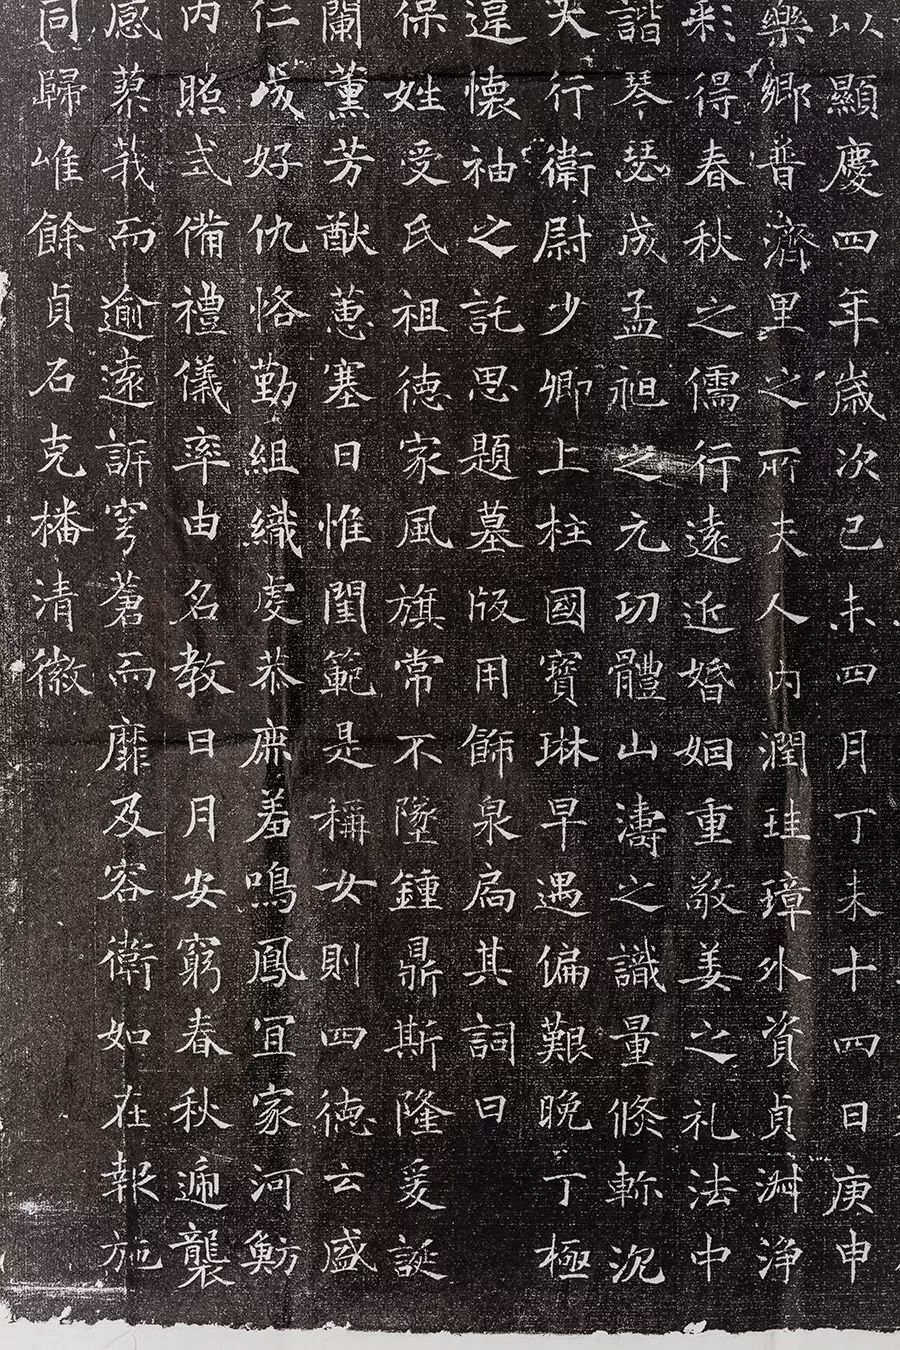 以顯慶四年歲次己未四月丁未十四日庚申
樂鄉普濟里之所夫人內潤珪璋外資貞淑淨
彩得春秋之儒行遠近婚姻重敬姜之礼法中
諧琴瑟成孟祖之元功體山濤之識量脩斬況
夫行衛尉少卿上柱國寶琳早遇偏艱晚丁極
違懷袖之託思題墓版用飾泉扃其詞曰
保姓受氏祖德家風旗常不墜鍾鼎斯隆爰誕
蘭薰芳猷蕙塞日惟閨範是稱女則四德云盛
仁成好仇恪勤組織虔恭庶羞鳴鳳宜家河魴
內照式備禮儀率由名教日月安窮春秋遞襲
感蓼莪而逾遠訴穹蒼而靡及容衛如在報施
同歸唯餘貞石克播清徽